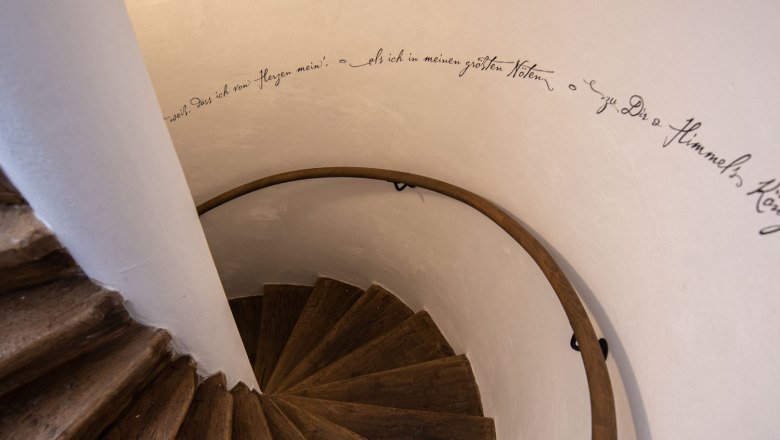 weiß, dass ich von Herzen mein', als ich in meinen größten Nöten zu Dir o Himmels